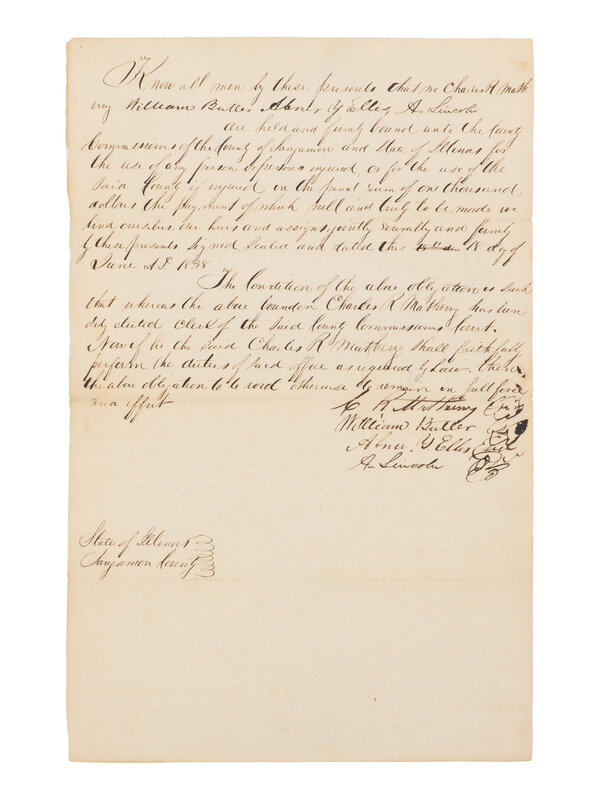 Know all men by these presents that we Charles R Math
eny William Butler Abner Y Ellis A. Lincoln
are held and firmly bound unto the County
Commissions of the County of Sangamon and State of Illinois for
the use of any person or persons injured, or for the use of the
said County if injured in the penal sum of one thousand
dollars the payment of which well and truly to be made we
bind ourselves our heirs and assigns, jointly severally and firmly
by these presents. Signed, Sealed and dated this 18 day of
June AD 1838
The Condition of the above obligation is such
that whereas the above bounden Charles R Matheny has been
duly elected Clerk of the said County Commissioners Court.
Now if he the said Charles R Matheny shall faithfully
perform the duties of said office as required by law. then
the above obligation to be void otherwise to remain in full force
and effect
C R Matheny
William Butler
Abner. Y Ellis Seal
A. Lincoln
State of Illinois
Sangamon County